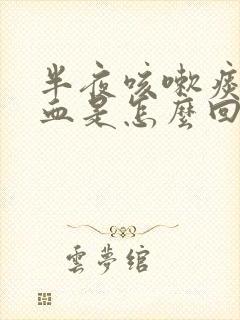 半夜咳嗽痰
血是怎麼回
雲夢綰